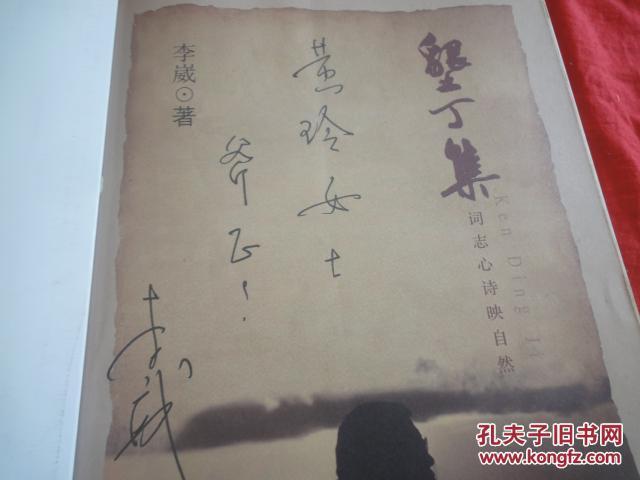 垦丁集
Ken Ding Ji
词志心诗映自然
黄玲女士
斧正！
李崴⊙著
李崴
孔夫子旧书网
www.kongfz.com